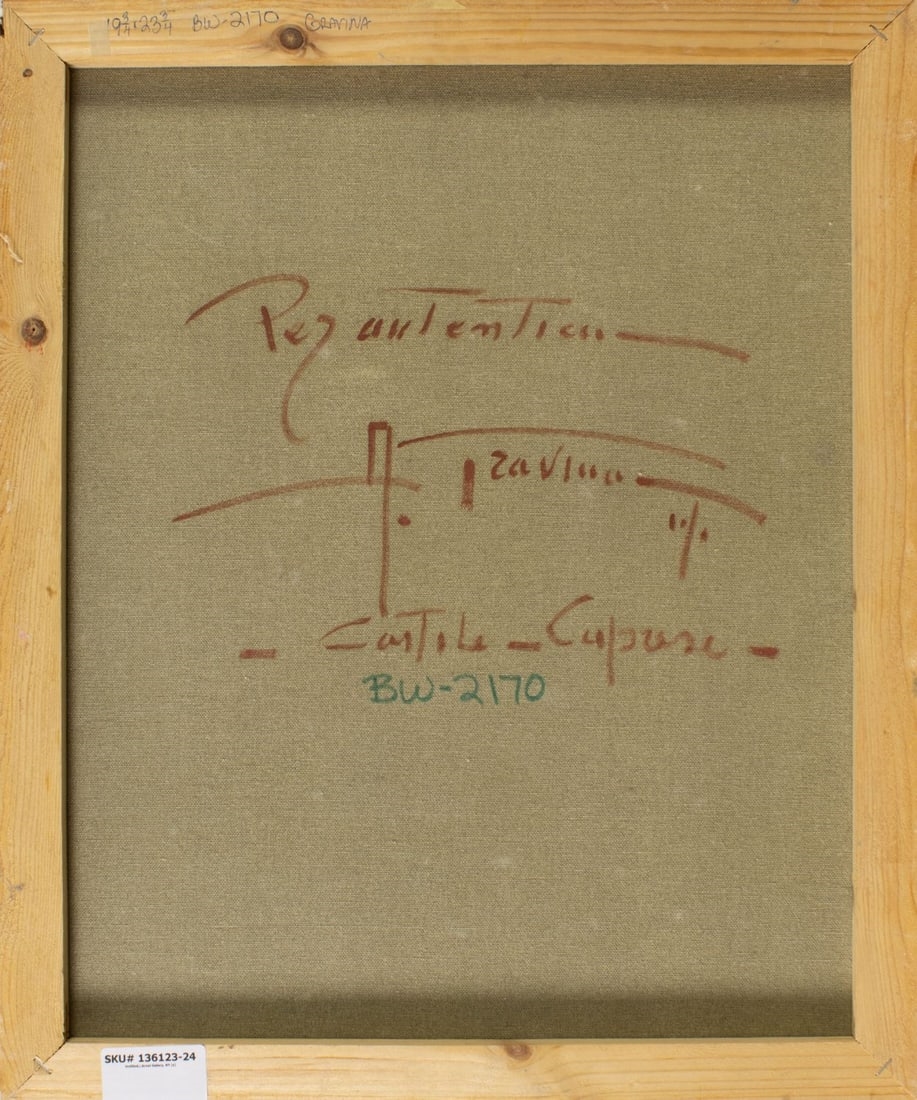 19 3/4 x 23 3/4 BW-2170 GRAVINA
Per autentica
A. Gravina
- Castile - Capuase -
BW-2170
SKU# 136123-24